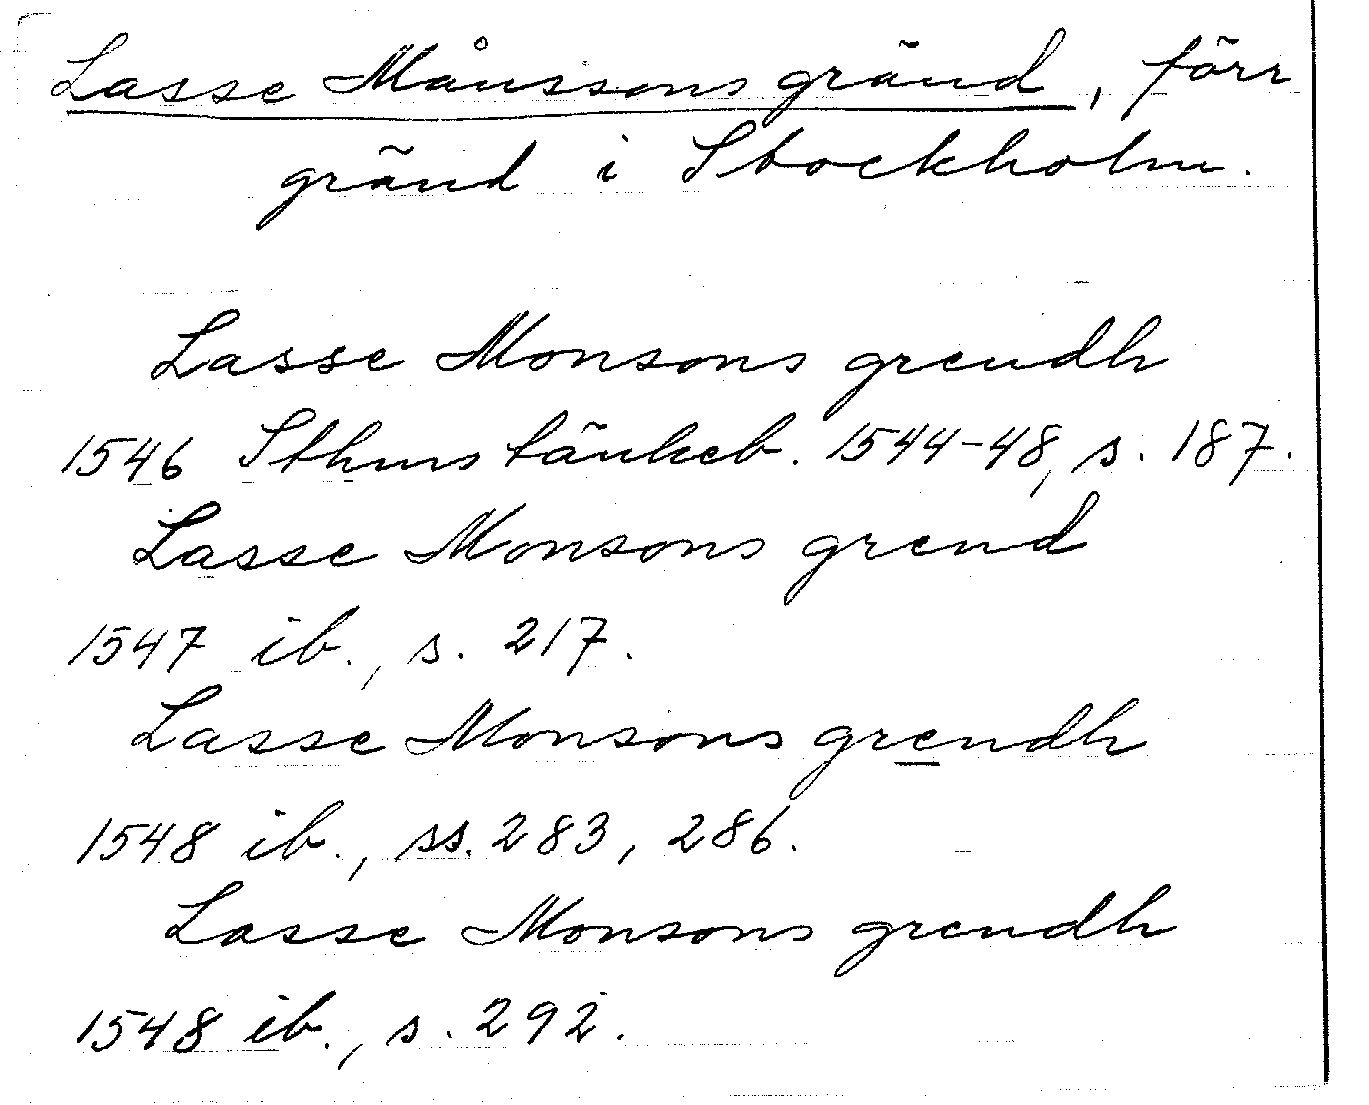 Lasse Månssons gränd, förr
gränd i Stockholm.
Lasse Monsons grendh
1546 Sthms tänkeb. 1544-48, s. 187.
Lasse Monsons grend
1547 ib., s. 217.
Lasse Monsons grendh
1548 ib., ss. 283, 286.
Lasse Monsons grendh
1548 ib., s. 292.